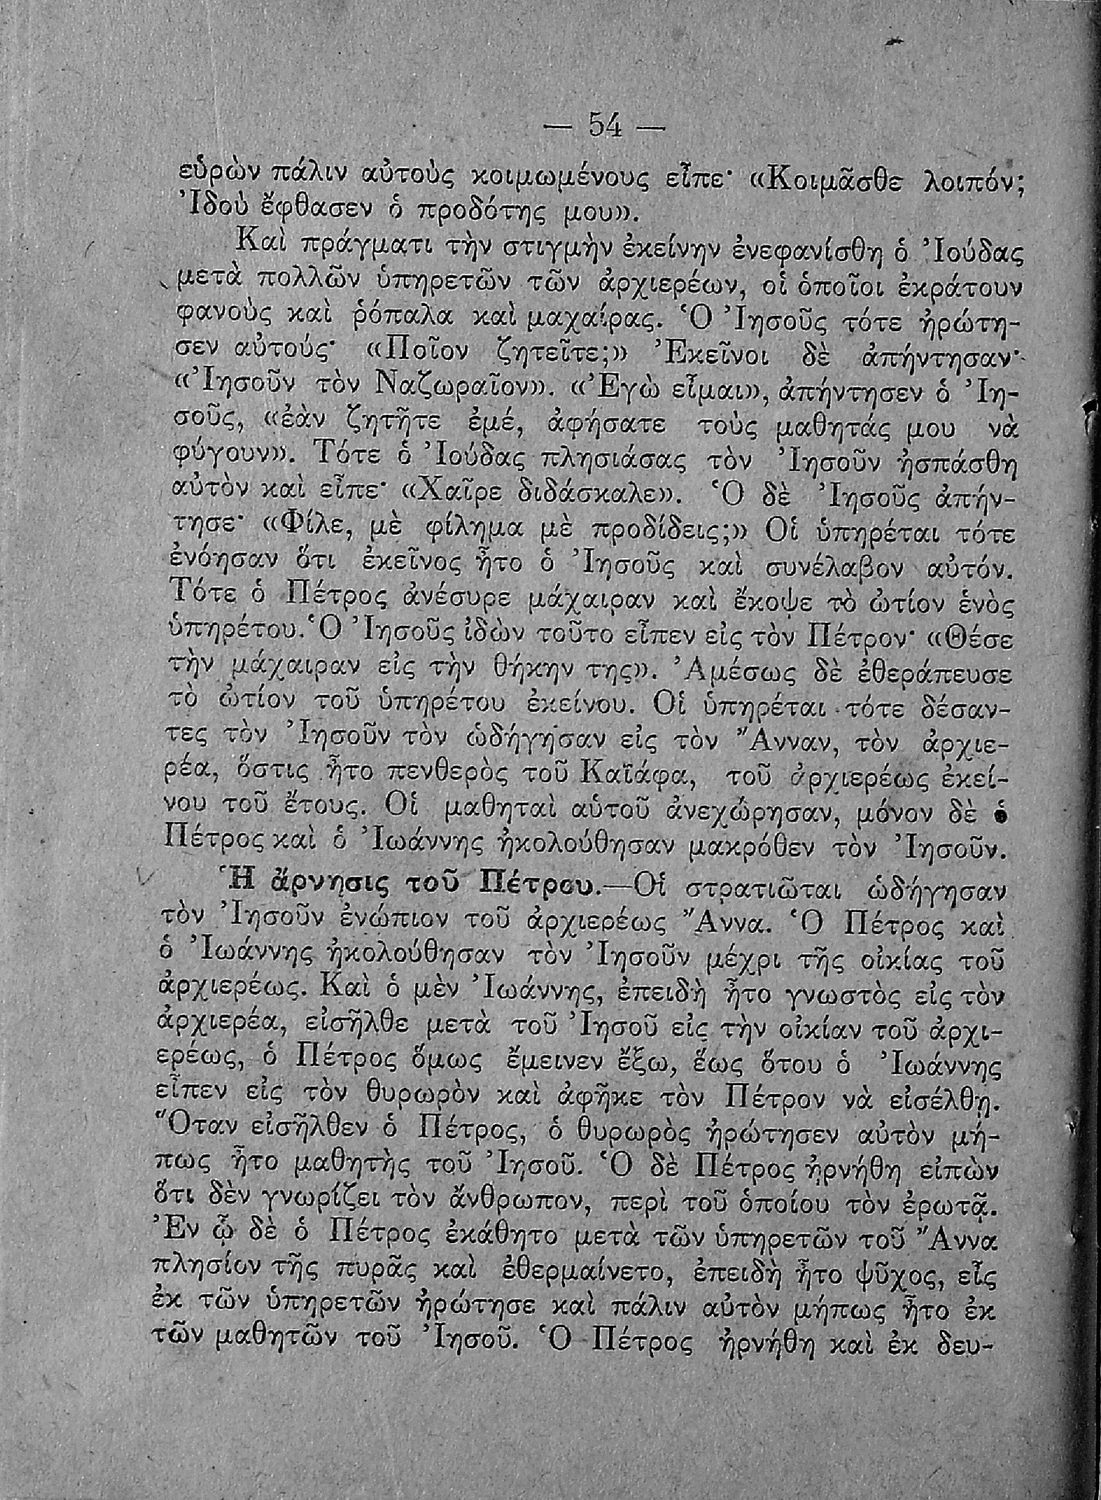 — 54 —
εὑρὼν πάλιν αὐτοὺς κοιμωμένους εἶπε· «Κοιμᾶσθε λοιπόν;
Ἰδοὺ ἔφθασεν ὁ προδότης μου».
Καὶ πράγματι τὴν στιγμὴν ἐκείνην ἐνεφανίσθη ὁ Ἰούδας
μετὰ πολλῶν ὑπηρετῶν τῶν ἀρχιερέων, οἱ ὁποῖοι ἐκράτουν
φανοὺς καὶ ῥόπαλα καὶ μαχαίρας. Ὁ Ἰησοῦς τότε ἠρώτη-
σεν αὐτούς· «Ποῖον ζητεῖτε;» Ἐκεῖνοι δὲ ἀπήντησαν·
«Ἰησοῦν τὸν Ναζωραῖον». «Ἐγὼ εἶμαι», ἀπήντησεν ὁ Ἰη-
σοῦς, «ἐὰν ζητῆτε ἐμέ, ἀφήσατε τοὺς μαθητάς μου νὰ
φύγουν». Τότε ὁ Ἰούδας πλησιάσας τὸν Ἰησοῦν ἠσπάσθη
αὐτὸν καὶ εἶπε· «Χαῖρε διδάσκαλε». Ὁ δὲ Ἰησοῦς ἀπήν-
τησε· «Φίλε, μὲ φίλημα μὲ προδίδεις;» Οἱ ὑπηρέται τότε
ἐνόησαν ὅτι ἐκεῖνος ἦτο ὁ Ἰησοῦς καὶ συνέλαβον αὐτόν.
Τότε ὁ Πέτρος ἀνέσυρε μάχαιραν καὶ ἔκοψε τὸ ὠτίον ἑνὸς
ὑπηρέτου. Ὁ Ἰησοῦς ἰδὼν τοῦτο εἶπεν εἰς τὸν Πέτρον· «Θέσε
τὴν μάχαιραν εἰς τὴν θήκην της». Ἀμέσως δὲ ἐθεράπευσε
τὸ ὠτίον τοῦ ὑπηρέτου ἐκείνου. Οἱ ὑπηρέται τότε δέσαν-
τες τὸν Ἰησοῦν τὸν ὡδήγησαν εἰς τὸν Ἄνναν, τὸν ἀρχιε-
ρέα, ὅστις ἦτο πενθερὸς τοῦ Καϊάφα, τοῦ ἀρχιερέως ἐκεί-
νου τοῦ ἔτους. Οἱ μαθηταὶ αὐτοῦ ἀνεχώρησαν, μόνον δὲ ὁ
Πέτρος καὶ ὁ Ἰωάννης ἠκολούθησαν μακρόθεν τὸν Ἰησοῦν.
Ἡ ἄρνησις τοῦ Πέτρου.—Οἱ στρατιῶται ὡδήγησαν
τὸν Ἰησοῦν ἐνώπιον τοῦ ἀρχιερέως Ἄννα. Ὁ Πέτρος καὶ
ὁ Ἰωάννης ἠκολούθησαν τὸν Ἰησοῦν μέχρι τῆς οἰκίας τοῦ
ἀρχιερέως. Καὶ ὁ μὲν Ἰωάννης, ἐπειδὴ ἦτο γνωστὸς εἰς τὸν
ἀρχιερέα, εἰσῆλθε μετὰ τοῦ Ἰησοῦ εἰς τὴν οἰκίαν τοῦ ἀρχι-
ερέως, ὁ Πέτρος ὅμως ἔμεινεν ἔξω, ἕως ὅτου ὁ Ἰωάννης
εἶπεν εἰς τὸν θυρωρὸν καὶ ἀφῆκε τὸν Πέτρον νὰ εἰσέλθῃ.
Ὅταν εἰσῆλθεν ὁ Πέτρος, ὁ θυρωρὸς ἠρώτησεν αὐτὸν μή-
πως ἦτο μαθητὴς τοῦ Ἰησοῦ. Ὁ δὲ Πέτρος ἠρνήθη εἰπὼν
ὅτι δὲν γνωρίζει τὸν ἄνθρωπον, περὶ τοῦ ὁποίου τὸν ἐρωτᾷ.
Ἐν ᾧ δὲ ὁ Πέτρος ἐκάθητο μετὰ τῶν ὑπηρετῶν τοῦ Ἄννα
πλησίον τῆς πυρᾶς καὶ ἐθερμαίνετο, ἐπειδὴ ἦτο ψῦχος, εἷς
ἐκ τῶν ὑπηρετῶν ἠρώτησε καὶ πάλιν αὐτὸν μήπως ἦτο ἐκ
τῶν μαθητῶν τοῦ Ἰησοῦ. Ὁ Πέτρος ἠρνήθη καὶ ἐκ δευ-